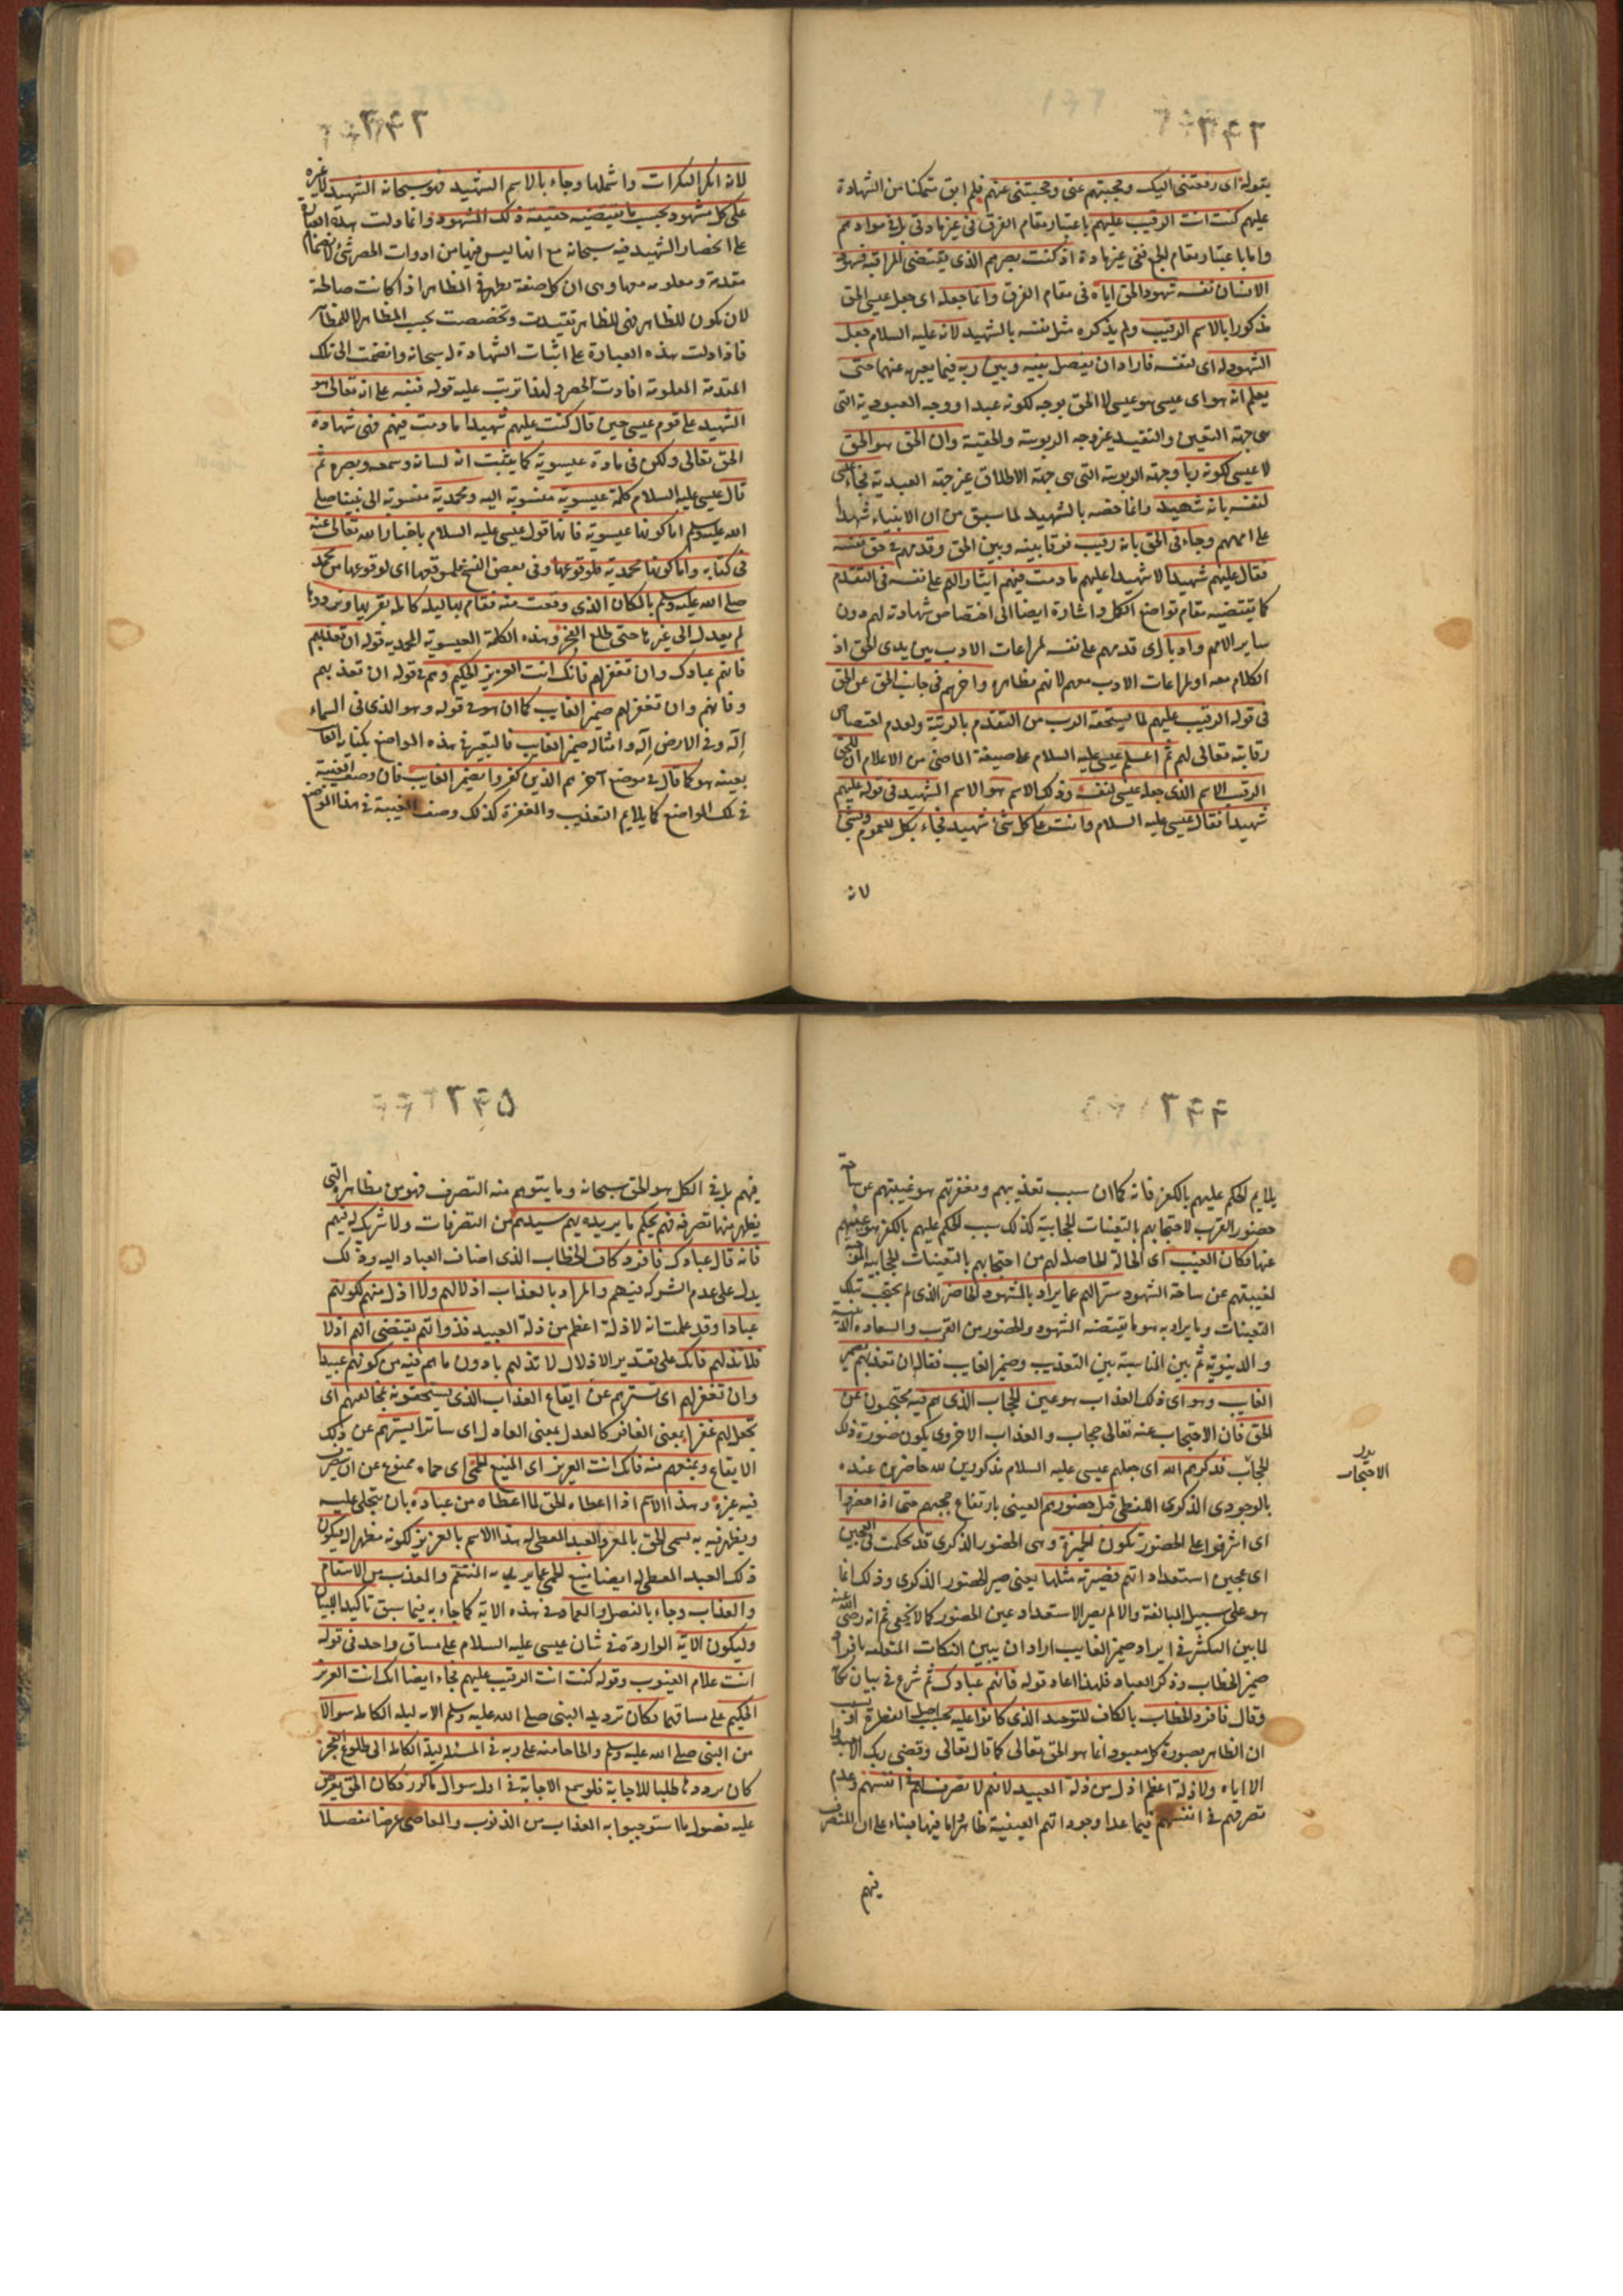 يقوله اى رفعتنى اليك وحجبتهم عنى وحجبتنى عنهم فلم ابق متمكنا من الشهادة
عليهم كنت انت الرقيب عليهم باعتبار مقام الفرق فى غير مادتى بل فى موادهم
واما باعتبار مقام الجمع ففى غير مادة اذ كنت بصرهم الذى يقتضى المراقبة فشهود
الانسان نفسه شهود الحق اياه فى مقام الفرق وانما جعله اى جعل عيسى الحق
مذكورا بالاسم الرقيب ولم يذكره مثل نفسه بالشهيد لانه عليه السلام جعل
الشهود له اى لنفسه فاراد ان يفصل بينه وبين ربه فيما يعبر به عنهما حتى
يعلم انه هو اى عيسى هو عيسى لا الحق بوجه لكونه عبدا ووجه العبودية التى
هى جهة التعين والتقيد غير وجه الربوبية والحقية وان الحق هو الحق
لا عيسى لكونه ربا وجهة الربوبية التى هى جهة الاطلاق غير جهة العبدية فجاء عيسى
لنفسه بانه شهيد وانما خصه بالشهيد لما سبق من ان الانبياء شهدا
على اممهم وجاء فى الحق بانه رقيب فرقا بينه وبين الحق وقدمهم فى حق نفسه
فقال عليهم شهيدا لا شهيدا عليهم ما دمت فيهم ايثارا لهم على نفسه فى التقدم
كما يقتضيه مقام تواضع الكل واشارة ايضا الى اختصاص شهادته لهم دون
ساير الامم وادبا اى قدمهم على نفسه لمراعات الادب بين يدى الحق اذ
الكلام معه او لمراعات الادب معهم لانهم مظاهره واخرهم فى جانب الحق عن الحق
فى قوله الرقيب عليهم لما يستحقه الرب من التقدم بالرتبة ولعدم اختصاص
رقابته تعالى لهم ثم اعلم عيسى عليه السلام على صيغة الماضى من الاعلام ان للحق
الرقيب الاسم الذى جعله عيسى لنفسه وذلك الاسم هو الاسم الشهيد فى قوله عليهم
شهيدا فقال عيسى عليه السلام وانت على كل شئ شهيد فجاء بكل للعموم وبشئ
لانه
لانه انكر النكرات واشملها وجاء بالاسم الشهيد فهو سبحانه الشهيد لا غيره
على كل مشهود بحسب ما يقتضيه حقيقة ذلك المشهود وانما دلت هذه العبارة
على انحصار الشهيد فيه سبحانه مع انها ليس فيها من ادوات الحصر شئ لانضمام
مقدمة معلومة معها وهى ان كل صفة يظهر فى المظاهر اذا كانت صالحة
لان يكون للظاهر فهى للظاهر تقيدت وتخصصت بحسب المظاهر لا للمظاهر
فاذا دلت هذه العبارة على اثبات الشهادة له سبحانه وانضمت الى تلك
المقدمة المعلومة افادت الحصر ولهذا ترتب عليه قوله فنبه على انه تعالى هو
الشهيد على قوم عيسى حين قال كنت عليهم شهيدا ما دمت فيهم فهى شهادة
الحق تعالى ولكن فى مادة عيسوية كما يثبت انه لسانه وسمعه وبصره ثم
قال عيسى عليه السلام كلمة عيسوية منسوبة اليه ومحمدية منسوبة الى نبينا صلى
الله عليه وسلم اما كونها عيسوية فانها قول عيسى عليه السلام باخبار الله تعالى عنه
فى كتابه واما كونها محمدية فلوقوعها وفى بعض النسخ فلموقعها اى لوقوعها من محمد
صلى الله عليه وسلم بالمكان الذى وقعت منه فقام بها ليلة كاملة يقريها ويرددها
لم يعدل الى غيرها حتى طلع الفجر وهذه الكلمة العيسوية المحمدية قوله ان تعذبهم
فانهم عبادك وان تغفر لهم فانك انت العزيز الحكيم وهم فى قوله ان تعذبهم
وفانهم وان تغفر لهم ضمير الغايب كما ان هو فى قوله وهو الذى فى السماء
اله وفى الارض اله وامثاله ضمير الغايب فالتعبير فى هذه المواضع بكناية الغا
بعينه هو كما قال فى موضع آخر هم الذين كفروا بضمير الغايب فان وصف الغيبة
فى تلك المواضع كما يلايم التعذيب والمغفرة كذلك وصف الغيبة فى هذا الموضع
يلايم الحكم عليهم بالكفر فانه كما ان سبب تعذيبهم ومغفرتهم هو غيبتهم عن ساحة
حضور القرب لاحتجابهم بالتعينات الحجابية كذلك سبب الحكم عليهم بالكفر هو غيبتهم
عنها فكان الغيب اى الحالة الحاصلة لهم من احتجابهم بالتعينات الحجابية الموجبة
لغيبتهم عن ساحة الشهود سترا لهم عما يراد بالمشهود الحاضر الذى لم يحتجب بتلك
التعينات وما يراد به هو ما يقتضيه الشهود والحضور من القرب والسعادة الدينية
والدنيوية ثم بين المناسبة بين التعذيب وضمير الغايب فقال ان تعذبهم بضمير
الغايب وهو اى ذلك العذاب هو عين الحجاب الذى هم فيه محتجبون عن
الحق فان الاحتجاب عنه تعالى حجاب والعذاب الاخروى يكون صورة ذلك
بدر الاحتجاب
الحجاب فذكرهم الله اى جعلهم عيسى عليه السلام مذكورين لله حاضرين عنده
بالوجودى الذكرى اللفظى قبل حضورهم العينى بارتفاع حجبهم حتى اذا حضروا
اى اشرفوا على الحضور تكون الخميرة وهى الحضور الذكرى قد تحكمت فى العجين
اى عجين استعداداتهم فصيرته مثلها يعنى صير الحضور الذكرى وذلك انما
هو على سبيل المبالغة والا لم يصر الاستعداد عين الحضور كما لا يخفى ثم انه رضى الله عنه
لما بين السر فى ايراد ضمير الغايب اراد ان يبين النكات المتعلقة بافراد
ضمير الخطاب وذكر العباد فلهذا اعاد قوله فانهم عبادك ثم شرع فى بيان نكا
وقال فافرد الخطاب بالكاف للتوحيد الذى كانوا عليه بحسب اصل الفطرة او بسبب
ان الظاهر بصورة كل معبود انما هو الحق تعالى كما قال تعالى وقضى ربك الا تعبدوا
الا اياه ولا ذلة اعظم اذل من ذلة العبيد لانهم لا تصرف لهم فى انفسهم وعدم
تصرفهم فى انفسهم فيما عدا وجوداتهم العينية ظاهر واما فيها فبناء على ان المتصرف
فيهم
فيهم بل فى الكل هو الحق سبحانه وما يتوهم منه التصرف فهو من مظاهره التى
يظهر منها تصرفه فهم بحكم ما يريده بهم سيدهم من التصرفات ولا شريك له فيهم
فانه قال عبادك فافرد كاف الخطاب الذى اضاف العباد اليه وذلك
يدل على عدم الشركة فيهم والمراد بالعذاب اذلالهم ولا اذل منهم لكونهم
عبادا وقد علمت انه لا ذلة اعظم من ذلة العبيد فذواتهم يقتضى انهم اذلا
فلا تذلهم فانك على تقدير الاذلال لا تذلهم بادون ما هم فيه من كونهم عبيدا
وان تغفر لهم اى تسترهم عن ايقاع العذاب الذى يستحقونه بمخالفتهم اى
تجعل لهم غفرا بمعنى الغافر كالعدل بمعنى العادل اى ساترا يسترهم عن ذلك
الايقاع ويمنعهم منه فانك انت العزيز اى المنيع الحمى اى حماه ممنوع عن ان يتصرف
فيه غيره وهذا الاسم اذا اعطاه الحق لما اعطاه من عباده بان يتجلى عليه
ويظهر فيه به يسمى الحق بالمعز والعبد المعطى له هذا الاسم بالعزيز لكونه مظهرا له فيكون
ذلك العبد المعطى له ايضا منيع الحمى عما يريد به المنتقم والمعذب من الانتقام
والعذاب وجاء بالفصل والعماد فى هذه الاية كما جاء به فيما سبق تاكيدا للبيان
وليكون الاية الواردة فى شان عيسى عليه السلام على مساق واحد فى قوله
انت علام الغيوب وقوله كنت انت الرقيب عليهم فجاء ايضا انك انت العزيز
الحكيم على مساقها فكان ترديد النبى صلى الله عليه وسلم الاية ليلة الكاملة سوالا
من النبى صلى الله عليه وسلم والحاحا منه على ربه فى المسئلة ليلة الكاملة الى طلوع الفجر
كان يرددها طلبا للاجابة فلو سمع الاجابة فى اول سوال ما كرر فكان الحق يعرض
عليه فصول ما استوجبوا به العذاب من الذنوب والمعاصى عرضا مفصلا